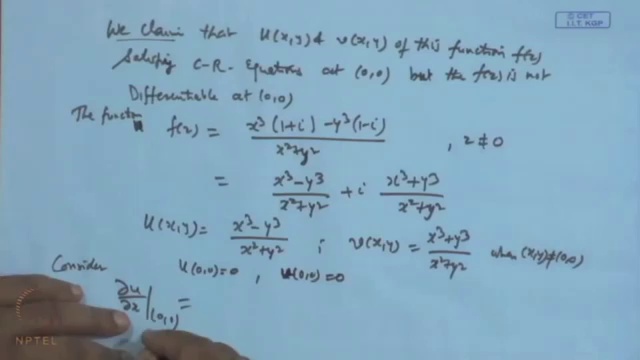 © CET
I.I.T. KGP
We claim that u(x,y) & v(x,y) of this function f(z)
Satisfies C-R- Equations at (0,0) but the f(z) is not
Differentiable at (0,0)
The function f(z) = x³(1+i) - y³(1-i) / x²+y² , z ≠ 0
= x³-y³ / x²+y² + i x³+y³ / x²+y²
u(x,y) = x³-y³ / x²+y² ; v(x,y) = x³+y³ / x²+y² when (x,y)≠(0,0)
u(0,0)=0 , v(0,0)=0
Consider
∂u/∂x |(0,0) =
NPTEL